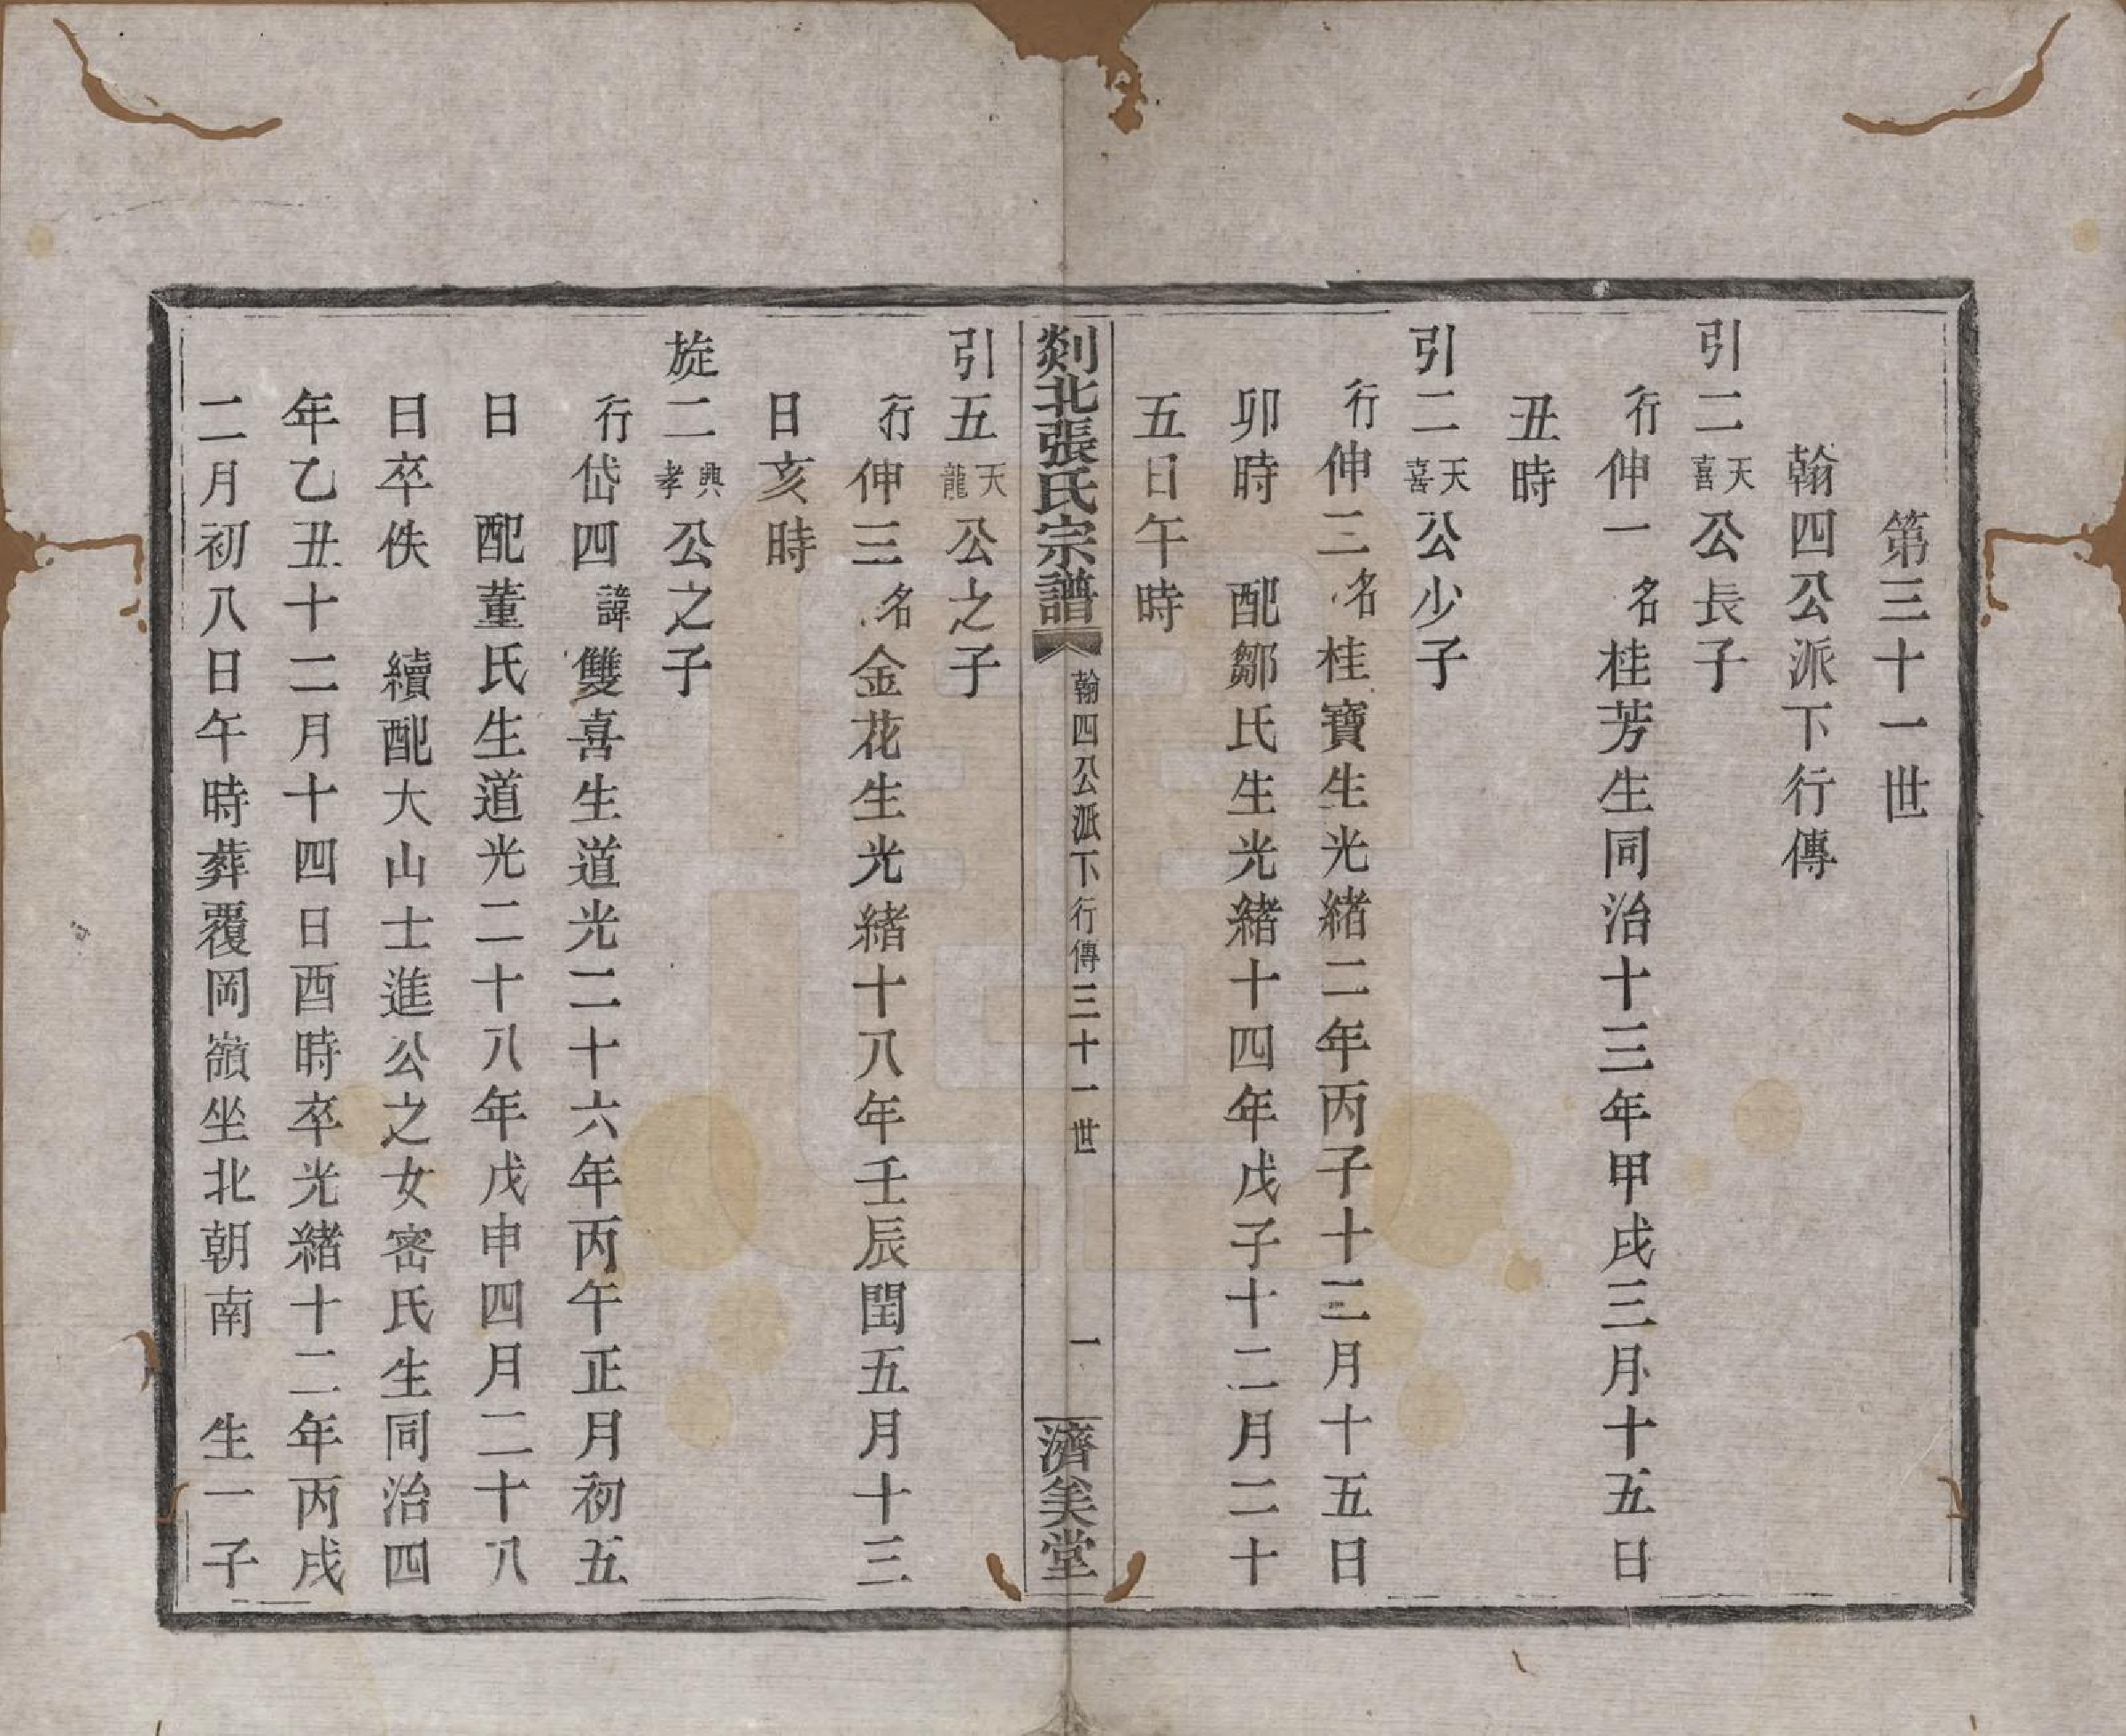 第三十一世
翰四公派下行傳
引二天喜公長子
行伸一名桂芳生同治十三年甲戌三月十五日
丑時
引二天喜公少子
行伸二名桂寶生光緒二年丙子十二月十五日
卯時　配鄒氏生光緒十四年戊子十二月二十
五日午時
剡北張氏宗譜　翰四公派下行傳三十一世　一　濟美堂
引五天龍公之子
行伸三名金花生光緒十八年壬辰閏五月十三
日亥時
旋二興孝公之子
行岱四諱雙喜生道光二十六年丙午正月初五
日　配董氏生道光二十八年戊申四月二十八
日卒佚　續配大山士進公之女密氏生同治四
年乙丑十二月十四日酉時卒光緒十二年丙戌
二月初八日午時葬覆岡嶺坐北朝南　生一子